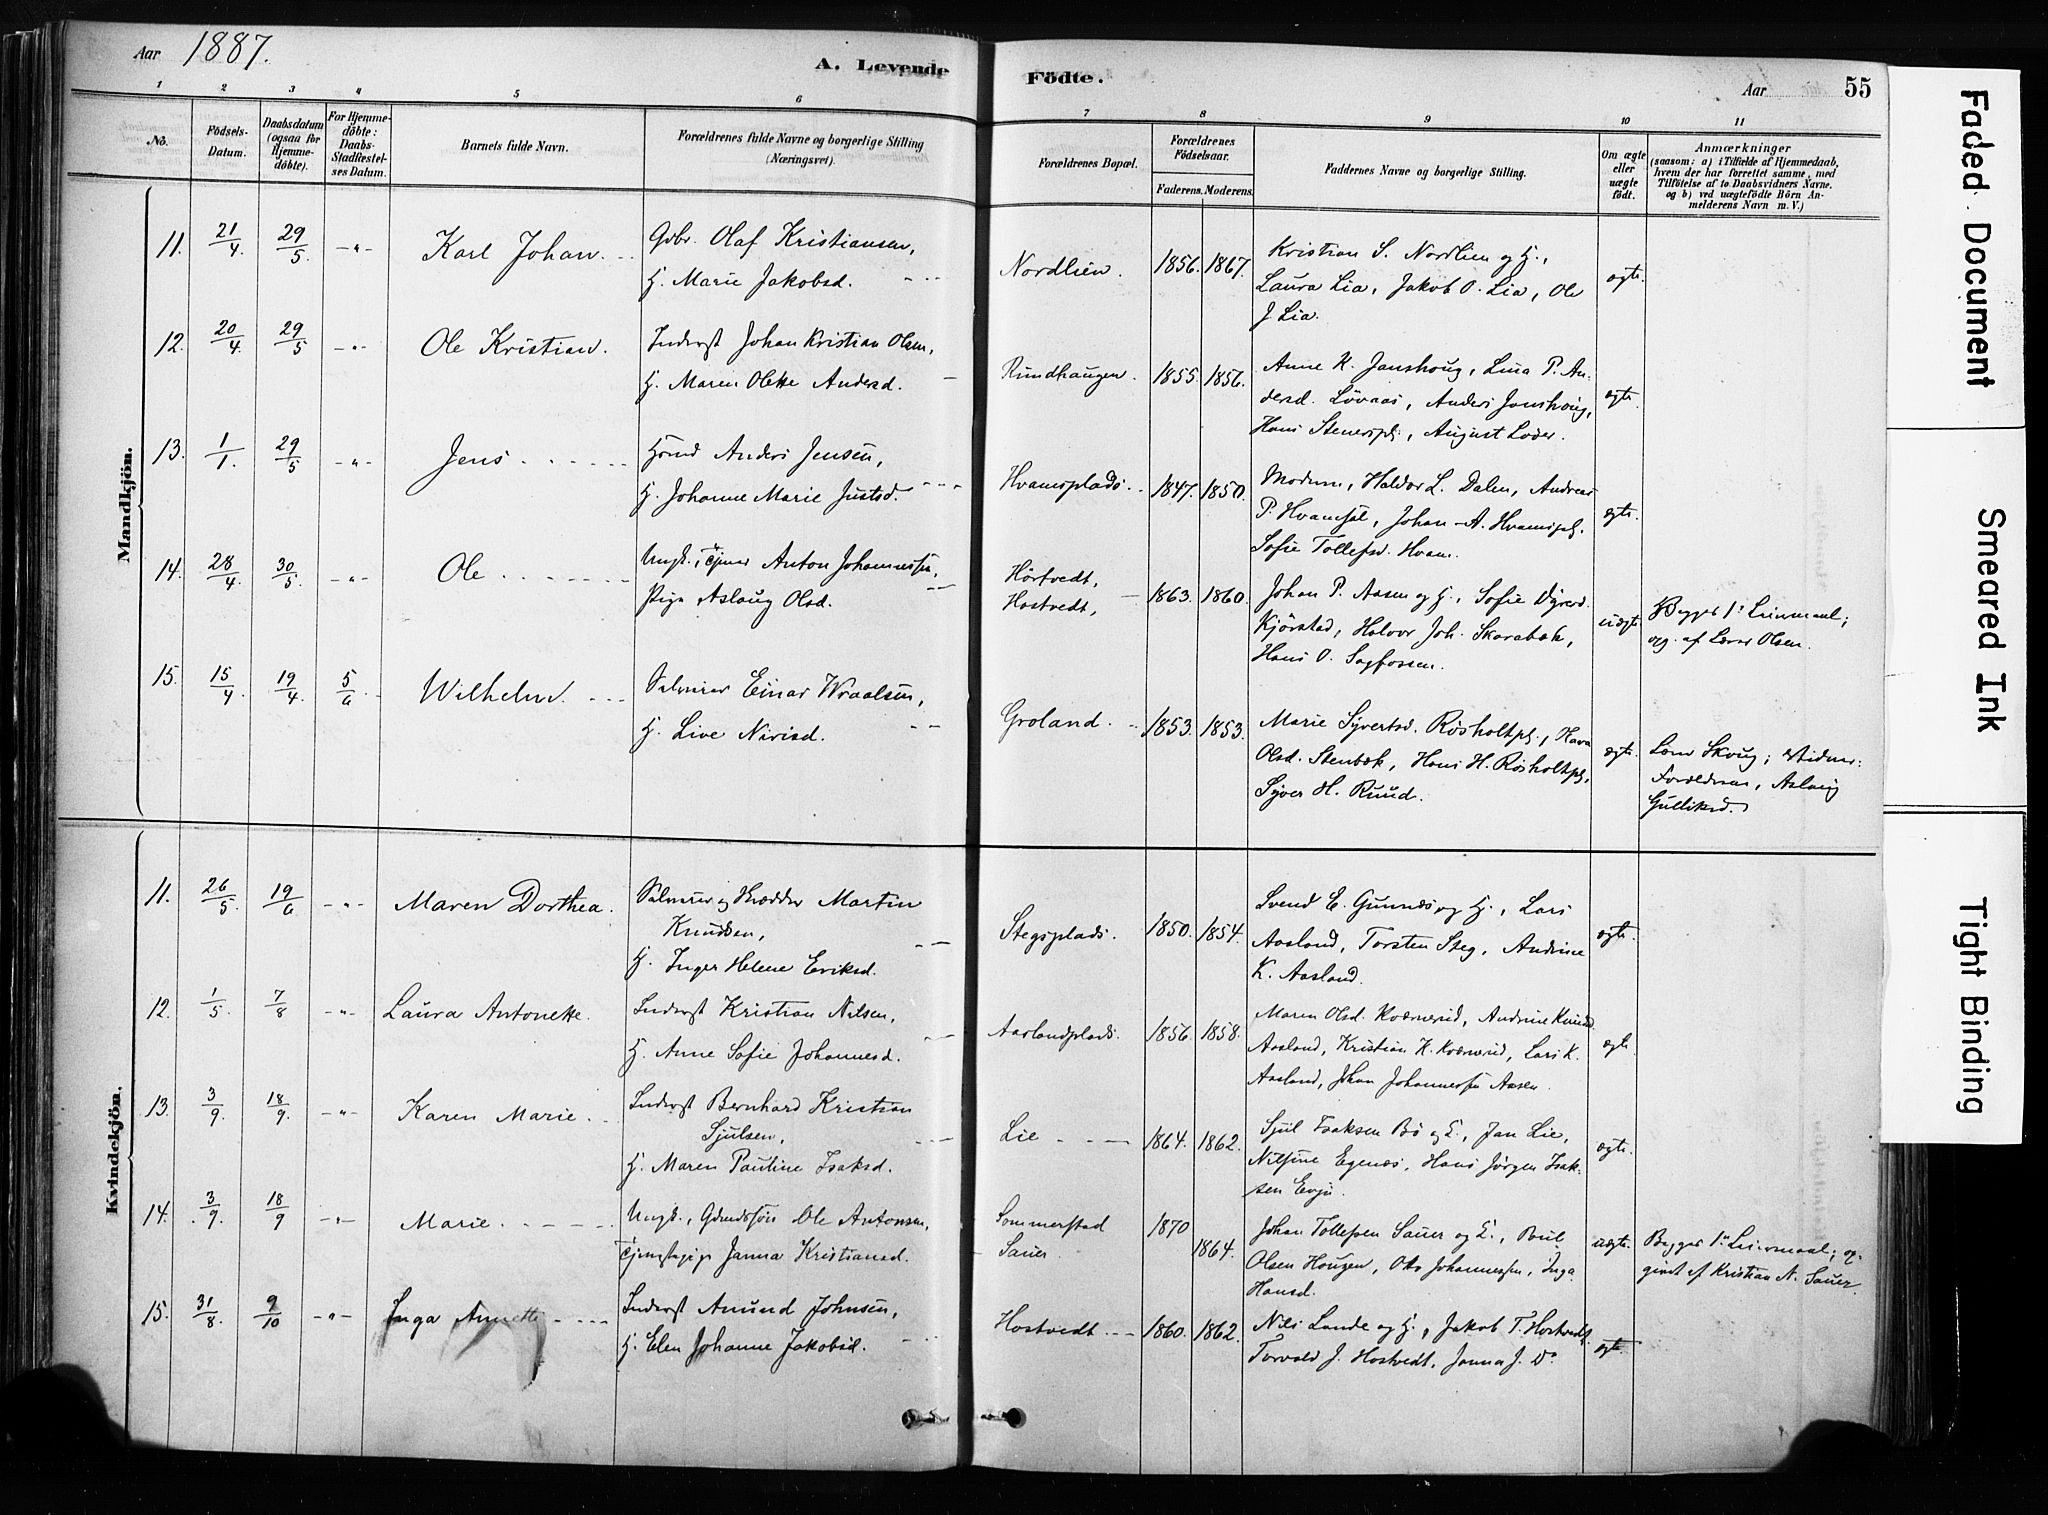 Aar 1887.
A. Levende
Födte.
Aar
55
1 2 3 4 5 6 7 8 9 10 11
No.
Födsels-Datum.
Daabsdatum (ogsaa for Hjemme-döbte).
For Hjemme-döbte: Daabs-Stadfæstel-ses Datum.
Barnets fulde Navn.
Forældrenes fulde Navne og borgerlige Stilling (Næringsvei).
Forældrenes Bopæl.
Forældrenes Födselsaar.
Faderens. Moderens.
Faddernes Navne og borgerlige Stilling.
Om ægte eller uægte födt.
Anmærkninger
(saasom: a) i Tilfælde af Hjemmedaab, hvem der har forrettet samme, med Tilföielse af to Daabsvidners Navne, og b) ved uægtefödte Börn An-melderens Navn m. V.)
Mandkjön.
11. 21/4 29/5 -"- Karl Johan.
Gbr. Olaf Kristiansen,
H. Marie Jakobsd.
Nordlien. 1856. 1867.
Kristian S. Nordlien og H.,
Laura Lia, Jakob O. Lia, Ole
J. Lia.
ægte.
12. 20/4 29/5 -"- Ole Kristian.
Inderst Johan Kristian Olsen,
H. Maren Olette Andersd.
Rundhaugen. 1855. 1856.
Anne K. Janshoug, Lina P. An-
dersd. Lövaas, Anders Janshoug,
Hans Stenerspl., August Loder.
ægte.
13. 1/1. 29/5 -"- Jens
Hsmd Anders Jensen,
H. Johanne Marie Justsd.
Hvamsplads. 1847. 1850.
Modrene, Haldor L. Dalen, Andreas
P. Hvamspl, Johan A. Hvamspl.
Sofie Tollefsd. Hvam.
ægte.
14. 28/4. 30/5. -"- Ole
Ungk., Tjener Anton Johannessen,
Pige Aslaug Olsd.
Hörtvedt,
Hostvedt, 1863. 1860.
Johan P. Aasen og H., Sofie
Kjörstad, Halvor Joh. Skarabæk,
Hans O. Sagfossen.
uægte
Begges 1ste Leiermaal;
opg. af Lærer Olsen.
15. 15/4 19/4. 5/6 Wilhelm.
Selveier Einar Wraalsen,
H. Live Nirisd.
Groland. 1853. 1853.
Marie Syvertsd. Rösholtpl.,
Olsd. Stenbæk, Hans H. Rösholtpl,
Syver H. Ruud.
ægte.
Lær Skoug; Vidner:
Forældrene, Aslaug
Gulliksd.
Kvindekjön.
11. 26/5. 19/6 -"- Maren Dorthea.
Selveier og Skrædder Martin
Knudsen,
H. Inger Helene Eriksd.
Stegsplads. 1850. 1854.
Svend E. Gunnes og H., Lars
Aasland, Torsten Steg, Andrine
K. Aasland.
ægte.
12. 1/5. 7/8 -"- Laura Antonette.
Inderst Kristian Nilsen,
H. Anne Sofie Johannesd.
Aaslandplads. 1856. 1858.
Maren Olsd. Kværnerud, Andrine Knudsd.
Aasland, Kristian H. Kværnerud, Lars K.
Aasland, Johan Johannessen Aasen.
ægte.
13. 3/9. 18/9. -"- Karen Marie.
Inderst Bernhard Kristian
Sjulsen,
H. Maren Pauline Isaksd.
Lie 1864. 1862.
Sjul Isaksen Bö og H., Jan Lie,
Nilsine Egenæs, Hans Jörgen Isak-
sen Evju.
ægte.
14. 3/9. 18/9 -"- Marie.
Ungk., Gbmdssön Ole Antonsen,
Tjenestepige Janna Kristiansd.
Sommerstad
Sauer. 1870 1864.
Johan Tollefsen Sauer og H., Paul
Olsen Hougen, Otto Johannessen, Inga
Hansd.
uægte.
Begges 1ste Leiermaal; op-
givet af Kristian N. Sauer.
15. 31/8. 9/10 -"- Inga Annette
Inderst Amund Johnsen,
H. Elen Johanne Jakobsd.
Hostvedt 1860. 1862.
Nils Lande og H., Jakob T. Hostvedt,
Torvald J. Hostvedt, Janna J. Do.
ægte.
Faded Document
Smeared Ink
Tight Binding